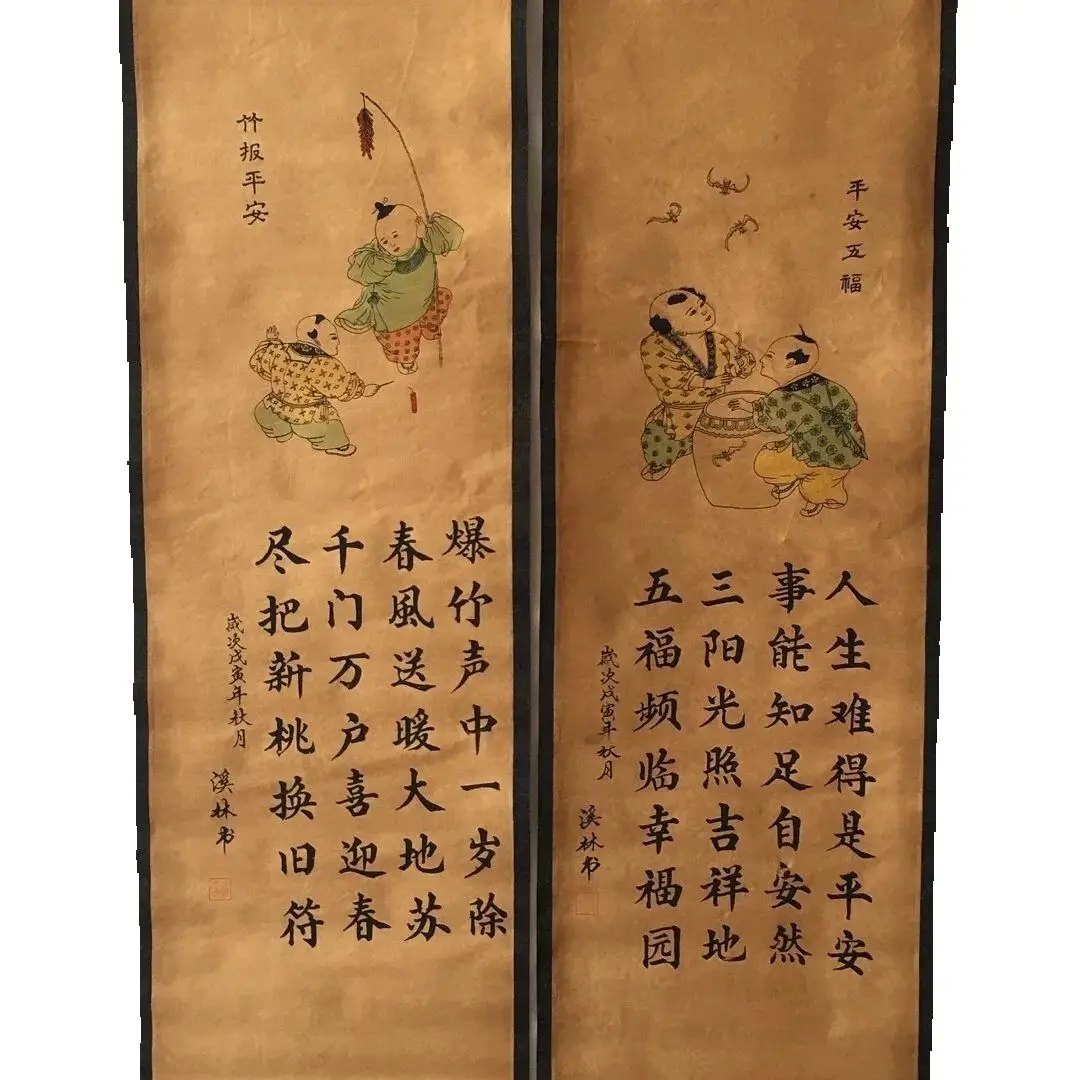 竹报平安
爆竹声中一岁除
春風送暖大地苏
千门万户喜迎春
尽把新桃换旧符
歲次戊寅年秋月
溪林书
平安五福
人生难得是平安
事能知足自安然
三阳光照吉祥地
五福频临幸福园
歲次戊寅年秋月
溪林书